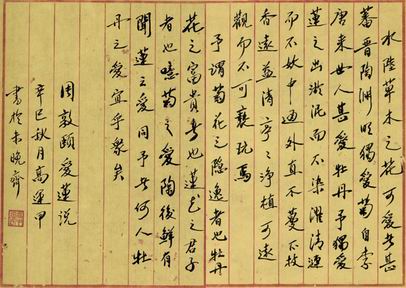 水陸草木之花可愛者甚
蕃晉陶淵明獨愛菊自李
唐来世人甚愛牡丹予獨愛
蓮之出淤泥而不染濯清漣
而不妖中通外直不蔓不枝
香遠益清亭々淨植可遠
觀而不可褻玩焉
予謂菊花之隱逸者也牡丹
花之富貴者也蓮花之君子
者也噫菊之愛陶後鮮有
聞蓮之愛同予者何人牡
丹之愛宜乎眾矣
周敦頤愛蓮说
辛巳秋月高運甲
書於未晚齋